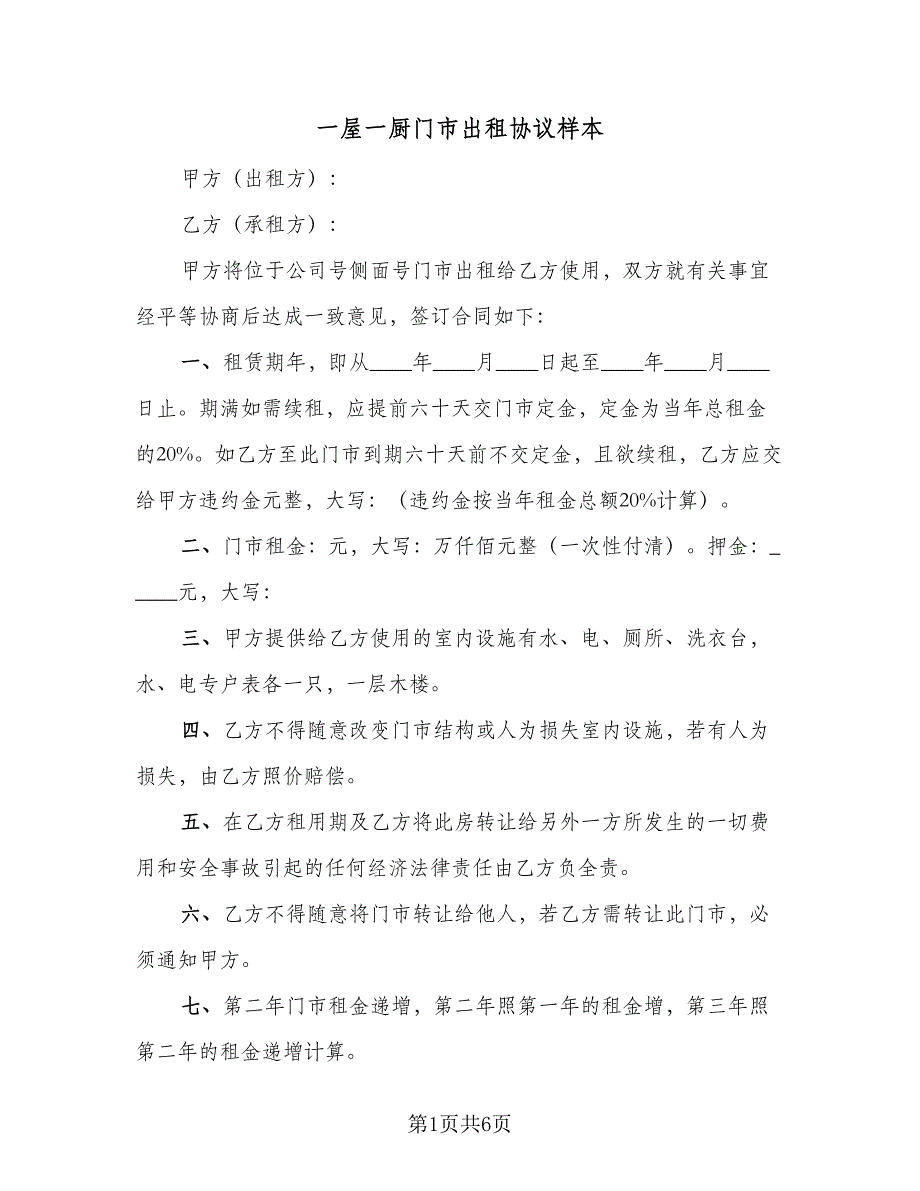 一屋一厨门市出租协议样本
甲方（出租方）：
乙方（承租方）：
甲方将位于公司号侧面号门市出租给乙方使用，双方就有关事宜
经平等协商后达成一致意见，签订合同如下：
一、租赁期年，即从____年____月____日起至____年____月____
日止。期满如需续租，应提前六十天交门市定金，定金为当年总租金
的20%。如乙方至此门市到期六十天前不交定金，且欲续租，乙方应交
给甲方违约金元整，大写：（违约金按当年租金总额20%计算）。
二、门市租金：元，大写：万仟佰元整（一次性付清）。押金：_
____元，大写：
三、甲方提供给乙方使用的室内设施有水、电、厕所、洗衣台，
水、电专户表各一只，一层木楼。
四、乙方不得随意改变门市结构或人为损失室内设施，若有人为
损失，由乙方照价赔偿。
五、在乙方租用期及乙方将此房转让给另外一方所发生的一切费
用和安全事故引起的任何经济法律责任由乙方负全责。
六、乙方不得随意将门市转让给他人，若乙方需转让此门市，必
须通知甲方。
七、第二年门市租金递增，第二年照第一年的租金增，第三年照
第二年的租金递增计算。
第1页共6页